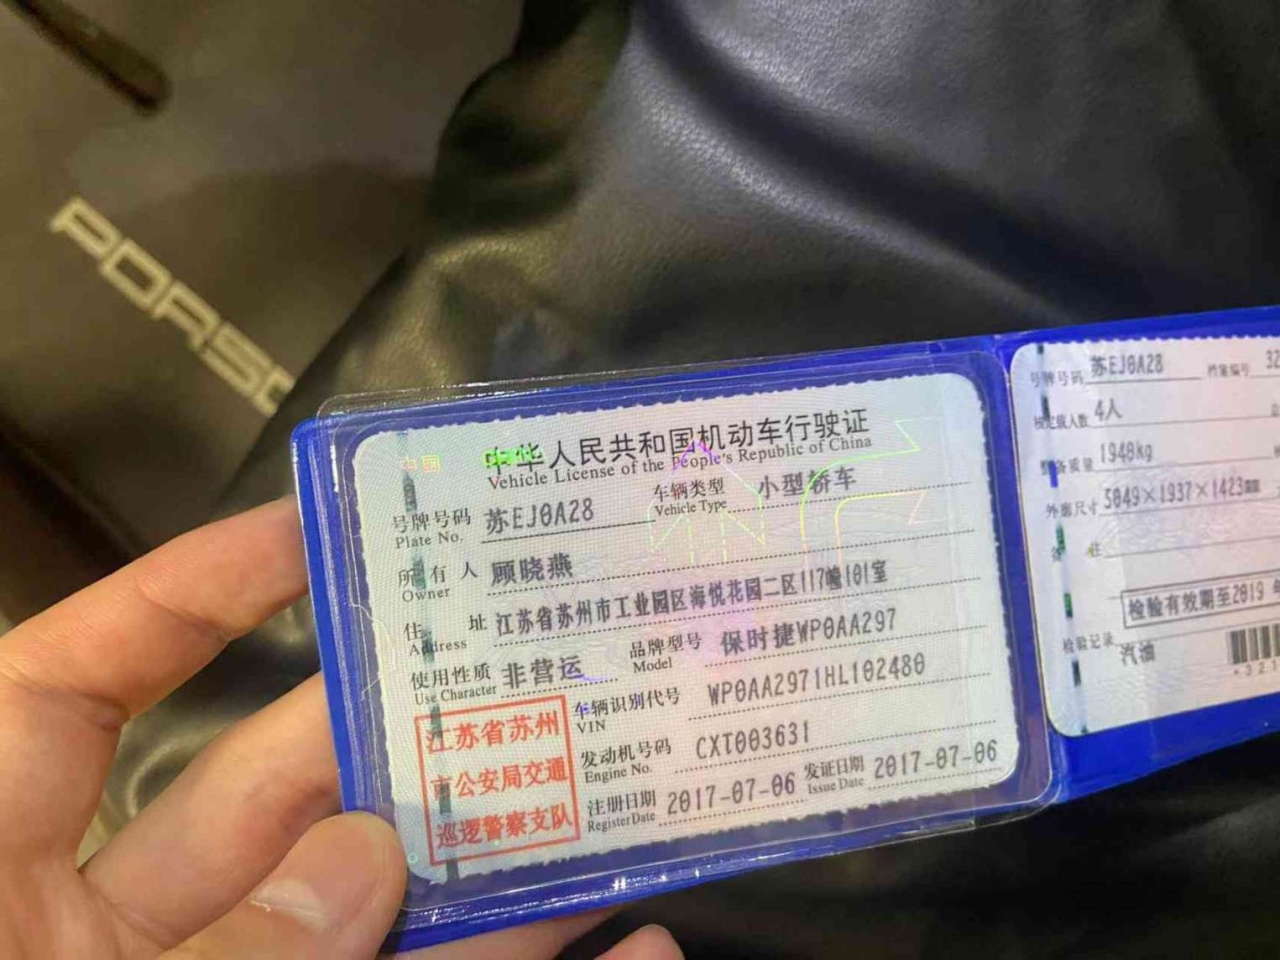 PORSC
中国
中华人民共和国机动车行驶证
Vehicle License of the People's Republic of China
号牌号码 苏EJ0A28 车辆类型 小型轿车
Plate No. Vehicle Type
所有人 顾晓燕
Owner
住址 江苏省苏州市工业园区海悦花园二区117幢101室
Address
使用性质 非营运 品牌型号 保时捷WP0AA297
Use Character Model
车辆识别代号 WP0AA2971HL102480
VIN
发动机号码 CXT003631
Engine No.
注册日期 2017-07-06 发证日期 2017-07-06
Register Date Issue Date
江苏省苏州
市公安局交通
巡逻警察支队
号牌号码 苏EJ0A28 档案编号 32
核定载人数 4人
整备质量 1940kg
外廓尺寸 5049×1937×1423mm
备注
检验有效期至2019
检验记录
汽油